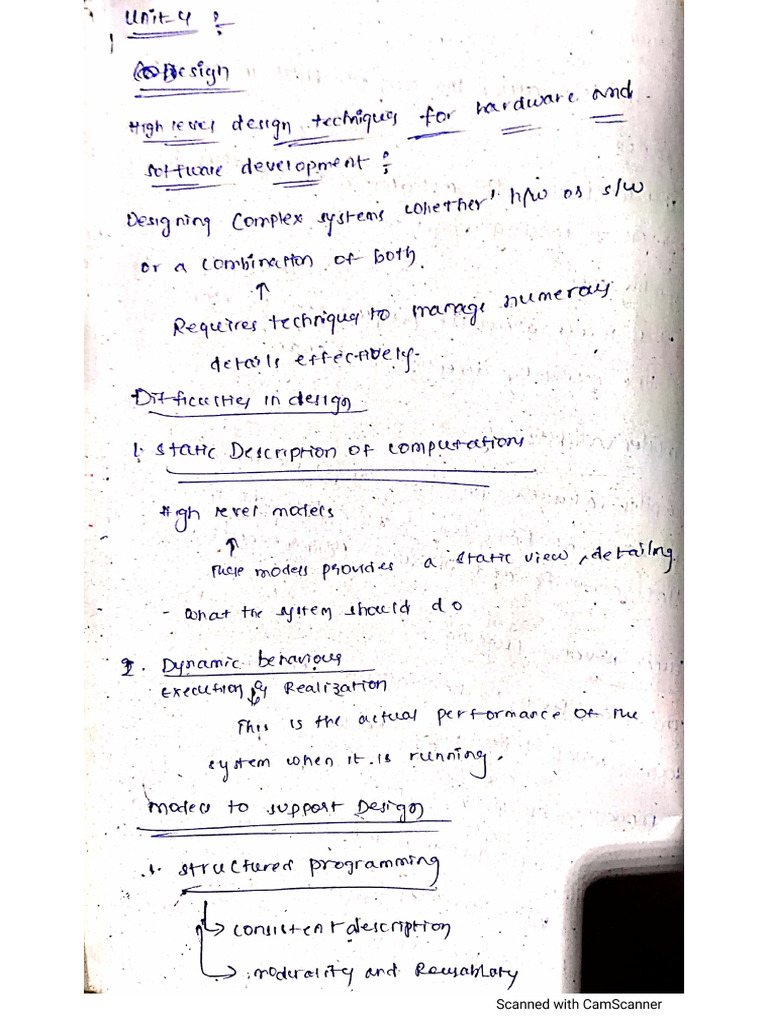 Unit-4 :
Design
High level design techniques for hardware and
software development :
Designing complex systems whether h/w or s/w
or a combination of both.
↑
Requires technique to manage numerous
details effectively.
Difficulties in design
1. Static Description of computations
High level models
↑
These models provides a static view, detailing
- what the system should do
2. Dynamic behaviour
Execution & Realization
This is the actual performance of the
system when it is running.
Models to support Design
1. structured programming
→ consistent description
→ modurality and Reusablaty
Scanned with CamScanner